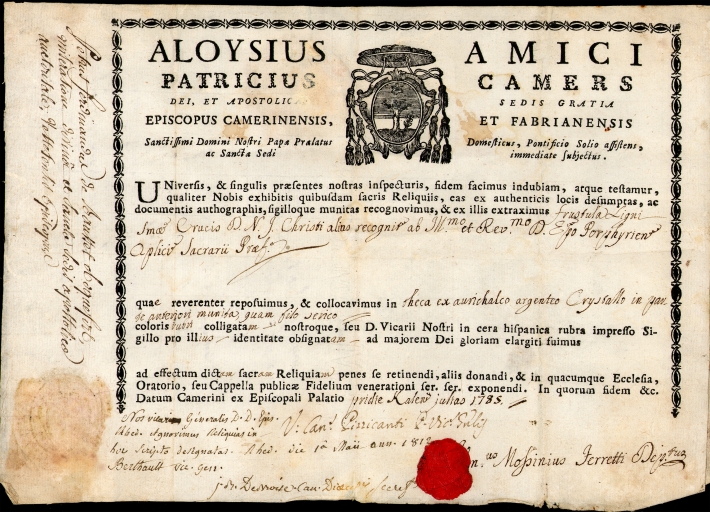 ALOYSIUS AMICI
PATRICIUS CAMERS
DEI, ET APOSTOLICAE SEDIS GRATIA
EPISCOPUS CAMERINENSIS, ET FABRIANENSIS
Sanctissimi Domini Nostri Papæ Prælatus Domesticus, Pontificio Solio assistens,
ac Sanctæ Sedi immediate subjectus.
UNiversis, & singulis præsentes nostras inspecturis, fidem facimus indubiam, atque testamur,
qualiter Nobis exhibitis quibusdam sacris Reliquiis, eas ex authenticis locis desumptas, ac
documentis authographis, sigilloque munitas recognovimus, & ex illis extraximus frustula Ligni
Smæ Crucis D. N. J. Christi alias recognit ab Illmo et Revmo D. Epo Porphyrien
Aplici Sacrarii Præf.
quae reverenter reposuimus, & collocavimus in theca ex aurichalco argenteo Crystallo in par
te anteriori munita, quam filo serico
coloris rubri colligatam nostroque, seu D. Vicarii Nostri in cera hispanica rubra impresso Si-
gillo pro illius identitate obsignatam ad majorem Dei gloriam elargiti fuimus
ad effectum dictam sacram Reliquiam penes se retinendi, aliis donandi, & in quacumque Ecclesia,
Oratorio, seu Cappella publicæ Fidelium venerationi ser. ser. exponendi. In quorum fidem &c.
Datum Camerini ex Episcopali Palatio pridie Kalen julias 1785.
V. Can. Pizzicanti
Nos vicarius Generalis D. D. Epis.
Rhed. agnovimus Reliquias in
hoc scripto designatas. Rhed. die 1a Maii ann.
Berthault vic. Gen.
Mossinius Ferretti